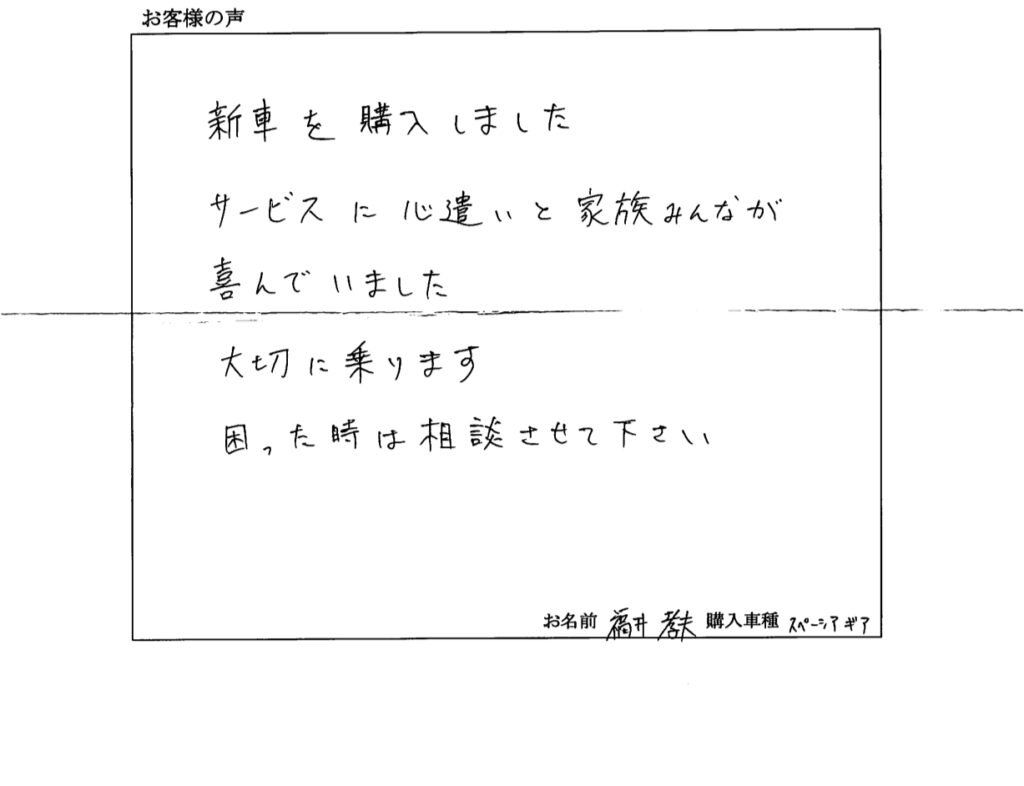 お客様の声
新車を購入しました
サービスに心遣いと家族みんなが
喜んでいました
大切に乗ります
困った時は相談させて下さい
お名前 福井 孝夫 購入車種 スペーシアギア